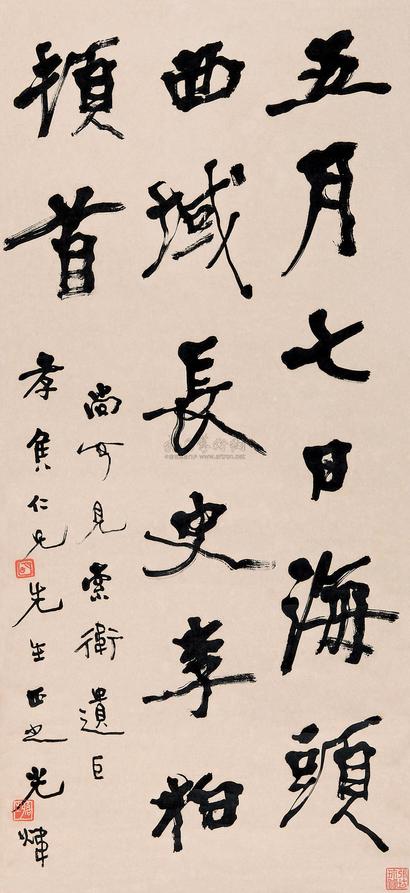 五月七日海頭
西域長史李柏
頓首
尚可見索衛遺巨
孝仁兄先生正之光煒